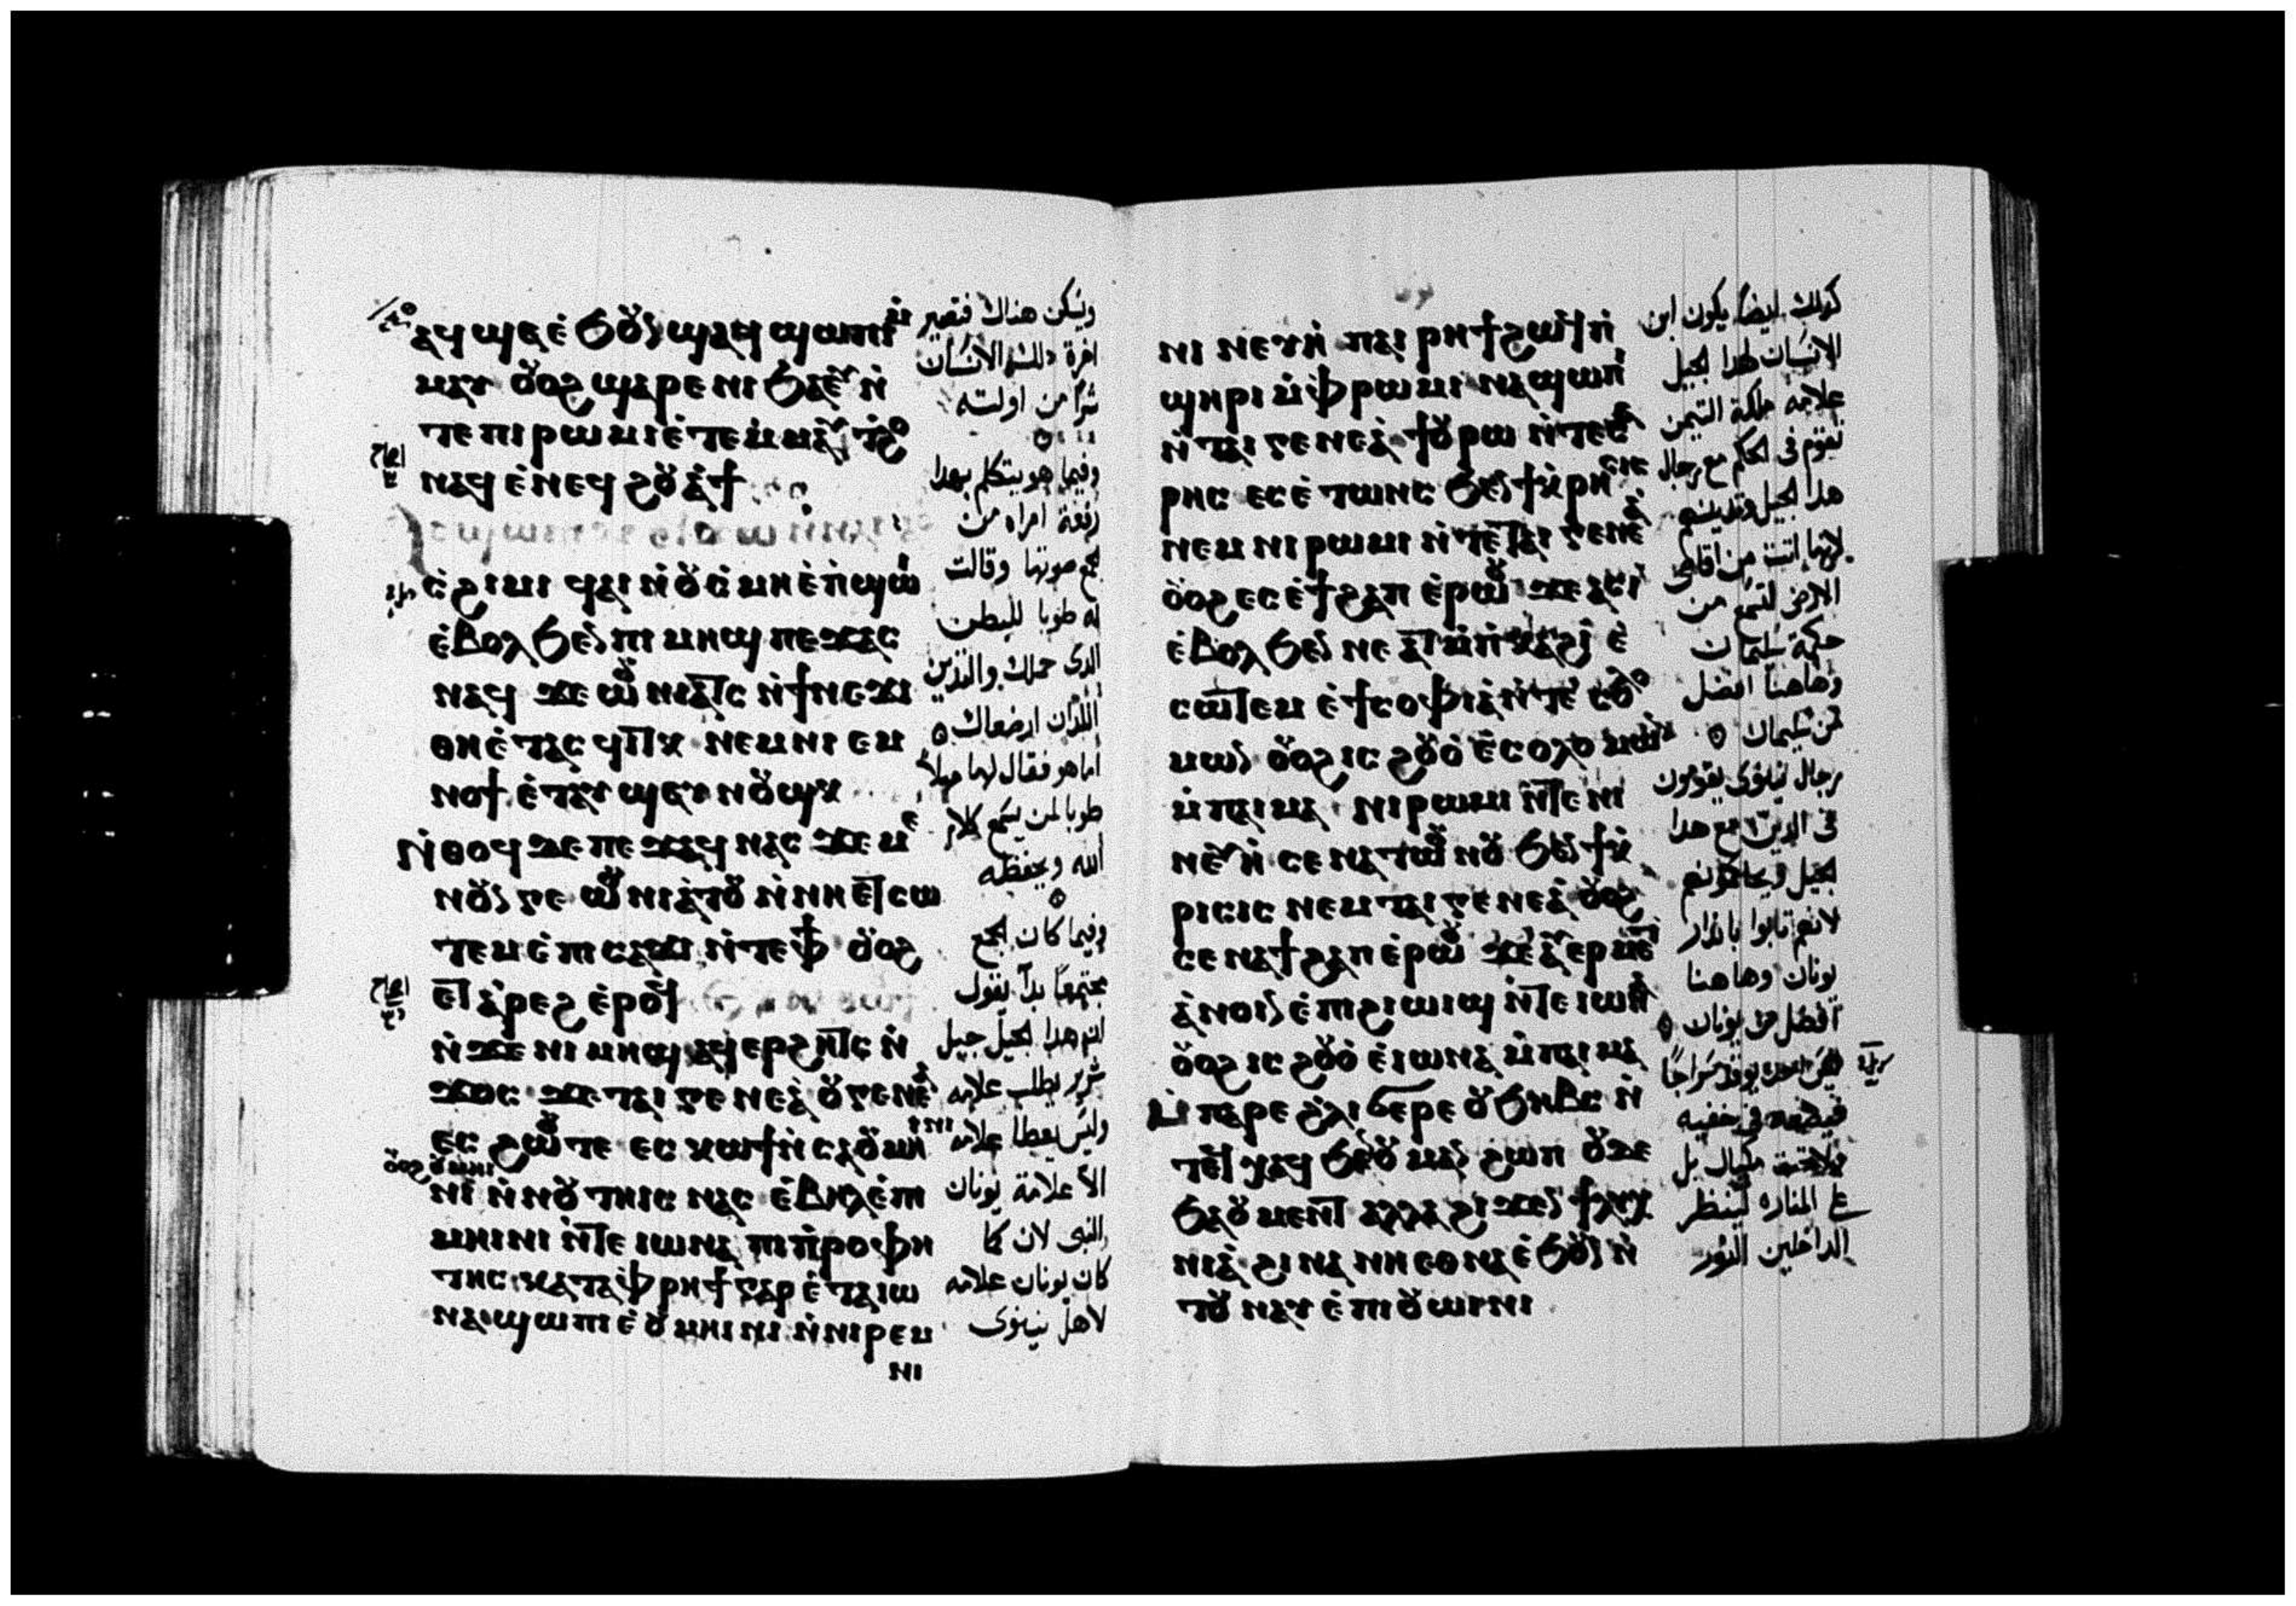 ⲁϥϣⲉ ⲉϧⲟⲩⲛ ϣⲁϥϣⲱⲡⲓ ⲙ̀
ⲙⲁⲩ ⲟⲩⲟϩ ϣⲁⲣⲉ ⲛⲓϧⲁⲉⲩ ⲛ̀
ⲧⲉ ⲡⲓⲣⲱⲙⲓ ⲉ̀ⲧⲉⲙ̀ⲙⲁⲩ
ⲛⲁϥ ⲉ̀ⲛⲉϥϩⲟⲩⲁϯ
ⲥ̀ϩⲓⲙⲓ ϥⲁⲓ ⲛ̀ⲟⲩⲥ̀ⲙⲏ ⲉ̀ⲡ̀ϣⲱⲓ
ⲉ̀ⲃⲟⲗϧⲉⲛ ⲡⲓⲙⲏϣ ⲡⲉϫⲁⲥ
ⲛⲁϥ ϫⲉ ⲱⲟⲩⲛⲓⲁⲧⲥ ⲛ̀ϯⲛⲉϫⲓ
ⲑⲏ ⲉ̀ⲧⲁⲥϥⲓⲧⲕ ⲛⲉⲙ ⲛⲓⲉⲙ
ⲛⲟϯ ⲉ̀ⲧⲁⲩϣⲁⲛⲟⲩϣⲕ
ⲛ̀ⲑⲟϥ ⲇⲉ ⲡⲉϫⲁϥ ⲛⲁⲥ ϫⲉ ⲙⲉ
ⲛⲟⲩⲛⲅⲉ ⲱⲟⲩⲛⲓⲁ̀ⲧⲟⲩ ⲛ̀ⲛⲏⲉⲧⲥⲱ
ⲧⲉⲙ ⲉ̀ⲡⲓⲥⲁϫⲓ ⲛ̀ⲧⲉ ⲫϯ ⲟⲩⲟϩ
ⲉⲧⲁ̀ⲣⲉϩ ⲉ̀ⲣⲟϥ
ⲛ̀ϫⲉ ⲛⲓⲙⲏϣ ⲁϥⲉⲣϩⲏⲧⲥ ⲛ̀
ϫⲟⲥ ϫⲉ ⲧⲁⲓⲅⲉⲛⲉⲁ̀ ⲟⲩⲅⲉⲛⲉⲁ̀
ⲉⲥϩⲱⲟⲩ ⲧⲉ ⲉⲥⲕⲱϯ ⲛ̀ⲥⲁ ⲟⲩⲙⲏⲓⲛⲓ
ⲟⲩⲟϩ ⲟⲩⲙⲏⲓ
ⲛⲓ ⲛ̀ⲛⲟⲩⲧⲏⲓⲥ ⲛⲁⲥ ⲉ̀ⲃⲏⲗ ⲉ̀ⲡⲓ
ⲙⲏⲓⲛⲓ ⲛ̀ⲧⲉ ⲓⲱⲛⲁ ⲡⲓⲡ̀ⲣⲟⲫⲏ
ⲧⲏⲥ ⲕⲁⲧⲁ ⲫⲣⲏϯ ⲅⲁⲣ ⲉ̀ⲧⲁ ⲓⲱ
ⲛⲁ ϣⲱⲡⲓ ⲉ̀ⲟⲩⲙⲏⲓⲛⲓ ⲛ̀ⲛⲓⲣⲉⲙ
ⲛⲓ
ويسكن هناك فتصير
اخرة ذلك الانسان
شرا من اولته
وفيما هو يتكلم بهذا
رفعة امراه من
جمع صوتها وقالت
له طوبا للبطن
الدى حملك والثديين
اللذان ارضعاك
اما هو فقال لها مهلا
طوبا لمن يسمع كلام
الله ويحفظه
وفيما كان الجمع
مجتمعا بدا يقول
ان هدا الجيل جيل
شرير يطلب علامه
وليس يعطا علامه
الا علامة يونان
النبى لان كما
كان يونان علامه
لاهل نينوى
ⲛⲓⲛⲉⲩⲏ ⲡⲁⲓⲣⲏϯ ϩⲱϥ ⲡ̀
ϣⲏⲣⲓ ⲙ̀ⲫⲣⲱⲙⲓ ⲛⲁϣⲱⲡⲓ
ⲛ̀ⲧⲁⲓⲅⲉⲛⲉⲁ̀ ϯⲟⲩⲣⲱ ⲛ̀ⲧⲉ ⲥⲁ
ⲣⲏⲥ ⲉⲥⲉ̀ⲧⲱⲛⲥ ϧⲉⲛ ϯⲕ̀ⲣⲏⲥⲓⲥ
ⲛⲉⲙ ⲛⲓⲣⲱⲙⲓ ⲛ̀ⲧⲉ ⲧⲁⲓⲅⲉⲛⲉⲁ̀
ⲟⲩⲟϩ ⲉⲥⲉ̀ϯϩⲁⲡ ⲉ̀ⲣⲱⲟⲩ ϫⲉ ⲁⲥⲓ̀
ⲉ̀ⲃⲟⲗϧⲉⲛ ⲛⲉ ⲁⲧ ⲙ̀ⲡ̀ⲕⲁϩⲓ ⲉ̀
ⲥⲱⲧⲉⲙ ⲉ̀ϯⲥⲟⲫⲓⲁ̀ ⲛ̀ⲧⲉ ⲥⲟⲗⲟ
ⲙⲱⲛ ⲟⲩⲟϩ ⲓⲥ ϩⲟⲩⲟ̀ ⲉ̀ⲥⲟⲗⲟⲙⲱⲛ
ⲙ̀ⲡⲁⲓⲙⲁ ⲛⲓⲣⲱⲙⲓ ⲛ̀ⲧⲉ ⲛⲓ
ⲛⲉⲩⲏ ⲥⲉⲛⲁⲧⲱⲟⲩⲛⲟⲩ ϧⲉⲛ ϯⲕ̀
ⲣⲓⲥⲓⲥ ⲛⲉⲙ ⲧⲁⲓⲅⲉⲛⲉⲁ̀ ⲟⲩⲟϩ
ⲥⲉⲛⲁϯϩⲁⲡ ⲉ̀ⲣⲱⲟⲩ ϫⲉ ⲁⲩⲉⲣⲙⲉⲧ
ⲁ̀ⲛⲟⲓⲛ ⲉ̀ⲡⲓϩⲓⲱⲓϣ ⲛ̀ⲧⲉ ⲓⲱⲛⲁ
ⲟⲩⲟϩ ⲓⲥ ϩⲟⲩⲟ̀ ⲉ̀ⲓⲱⲛⲁ ⲙ̀ⲡⲁⲓⲙⲁ
ⲙ̀ⲡⲁⲣⲉ ϩ̀ⲗⲓ ϭⲉⲣⲉ ⲟⲩϧⲏⲃⲥ ⲛ̀
ⲧⲉϥⲭⲁϥ ϧⲉⲛ ⲟⲩⲙⲁ ⲛ̀ϩⲱⲡ ⲟⲩⲇⲉ
ϧⲁ ⲟⲩⲙⲉⲛⲧ ⲁⲗⲗⲁ ϩⲓϫⲉⲛ ϯⲗⲩⲭ
ⲛⲓⲁ̀ ϩⲓⲛⲁ ⲛⲏⲉⲑⲛⲁ ⲉ̀ϧⲟⲩⲛ ⲛ̀
ⲧⲟⲩⲛⲁⲩ ⲉ̀ⲡⲓⲟⲩⲱⲓⲛⲓ
كذلك ايضا يكون ابن
الانسان لهدا الجيل
علامه ملكة التيمن
تقوم فى الحكم مع رجال
هدا الجيل وتدينهم
لانها اتت من اقاصى
الارض لتسمع من
حكمة سليمان
وهاهنا افضل
من سليمان
رجال نينوى يقومون
فى الدين مع هدا
الجيل ويحاكمونهم
لانهم تابوا بانذار
يونان وهاهنا
افضل من يونان
ليس احد يوقد سراجا
فيضعه فى خفيه
ولا تحت مكيال بل
على المناره لينظر
الداخلين النور